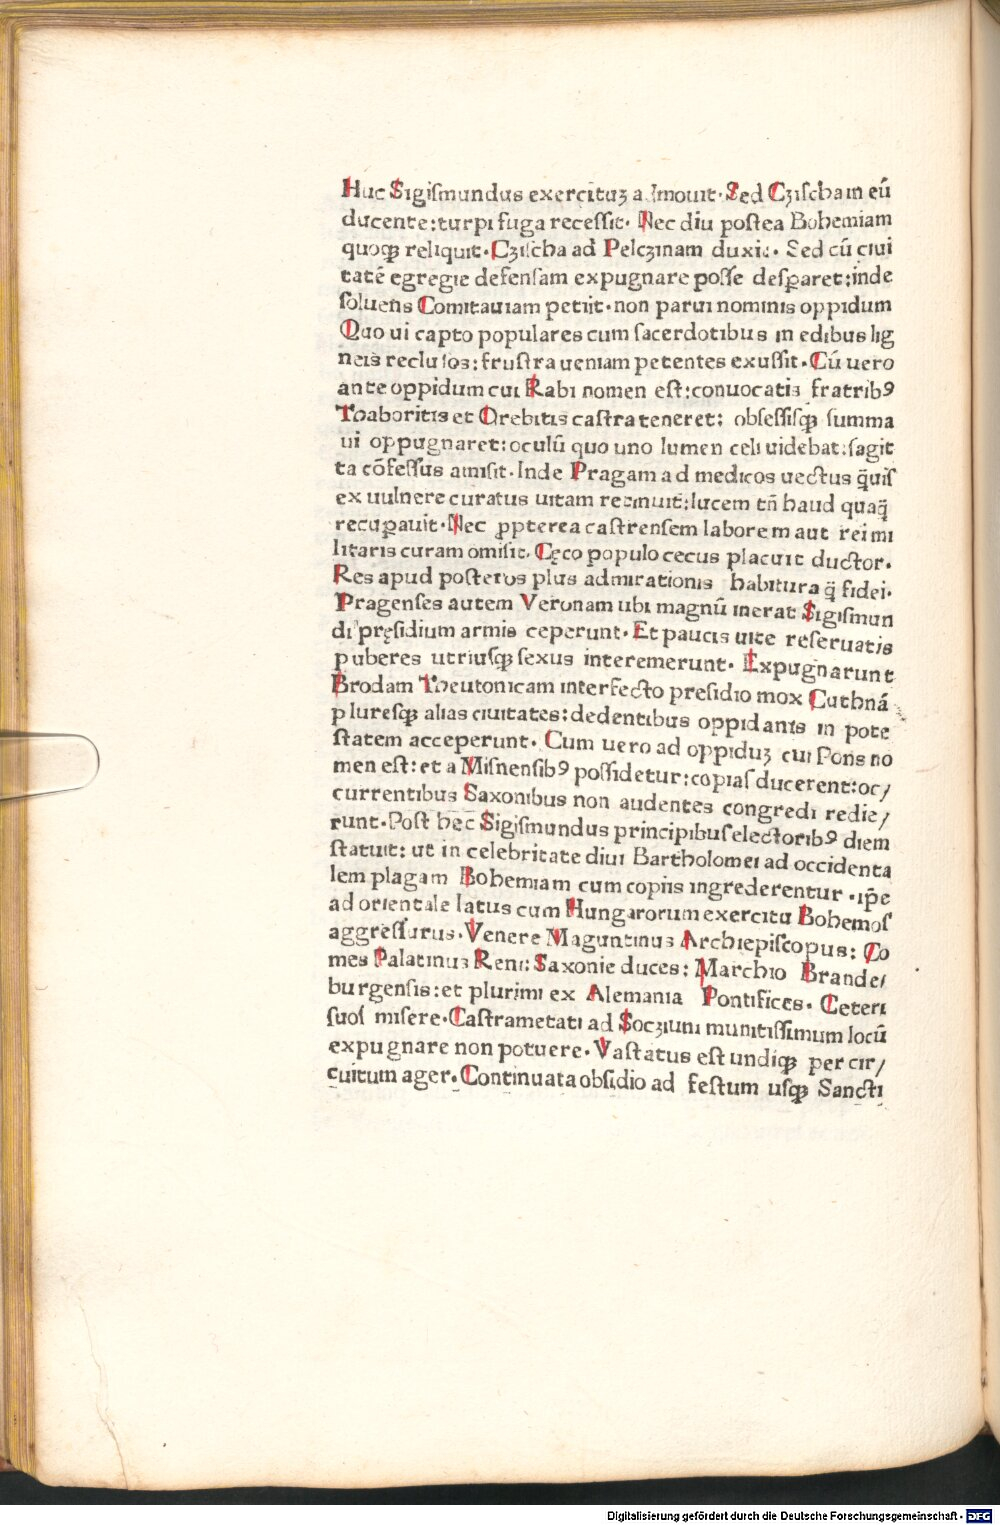 Huc Sigiſmundus exercituꝫ admouit· Sed Cziſcha in eū
ducente: turpi fuga receſſit· Nec diu poſtea Bohemiam
quoqꝫ reliquit· Cziſcha ad Pelczinam duxit· Sed cū ciui
tatē egregie defenſam expugnare poſſe deſꝑaret: inde
ſoluens Comitauiam petijt· non parui nominis oppidum
Quo ui capto populares cum ſacerdotibus in edibus lig
neis recluſos: fruſtra ueniam petentes exuſſit· Cū uero
ante oppidum cui Rabi nomen eſt: conuocatis fratribꝰ
Thaboritis et Orebitis caſtra teneret: obſeſſiſqꝫ ſumma
ui oppugnaret: oculū quo uno lumen celi uidebat: ſagit
ta cōfeſſus amiſit· Inde Pragam ad medicos uectus q̄uiſ
ex uulnere curatus uitam retinuit: lucem tn̄ haud quaq̄
recuꝑauit· Nec ꝓpterea caſtrenſem laborem aut rei mi
litaris curam omiſit· Cęco populo cecus placuit ductor·
Res apud poſteros plus admirationis habitura q̄ fidei·
Pragenſes autem Veronam ubi magnū inerat Sigiſmun
di pręſidium armis ceperunt· Et paucis uite reſeruatis
puberes utriuſqꝫ ſexus interemerunt· Expugnarunt
Brodam Theutonicam interfecto preſidio mox Cuthnā
plureſqꝫ alias ciuitates: dedentibus oppidanis in pote
ſtatem acceperunt· Cum uero ad oppiduꝫ cui Pons no
men eſt: et a Miſnenſibꝰ poſſidetur: copiaſ ducerent: oc/
currentibus Saxonibus non audentes congredi redie/
runt· Poſt hec Sigiſmundus principibuſ electoribꝰ diem
ſtatuit: ut in celebritate diui Bartholomei ad occidenta
lem plagam Bohemiam cum copiis ingrederentur · ip̄e
ad orientale latus cum Hungarorum exercitu Bohemoſ
aggreſſurus· Venere Maguntinus Archiepiſcopus: Co
mes Palatinus Reni: Saxonie duces: Marchio Brande/
burgenſis: et plurimi ex Alemania Pontifices· Ceteri
ſuoſ miſere· Caſtrametati ad Soczium munitiſſimum locū
expugnare non potuere· Vaſtatus eſt undiqꝫ per cir/
cuitum ager· Continuata obſidio ad feſtum uſqꝫ Sancti
Digitalisierung gefördert durch die Deutsche Forschungsgemeinschaft - DFG